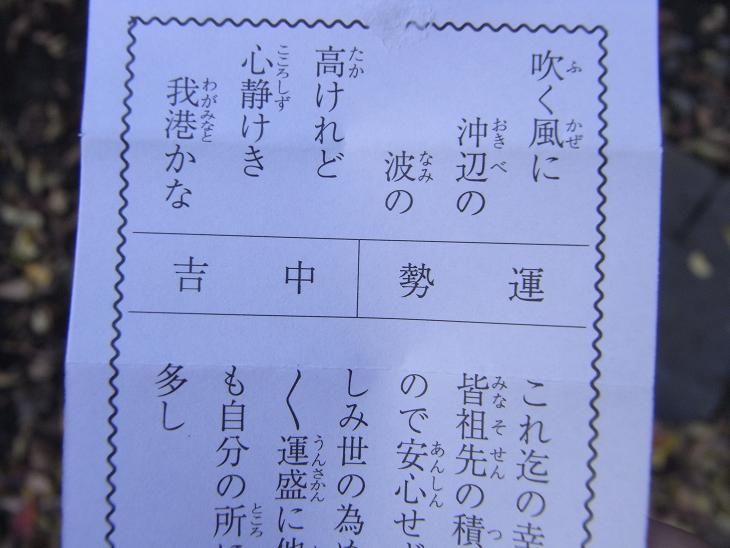 吹く風に
沖辺の
波の
高けれど
心静けき
我港かな
運勢
中吉
これ迄の幸
皆祖先の積
ので安心せ
しみ世の為
く運盛に他
も自分の所に
多し